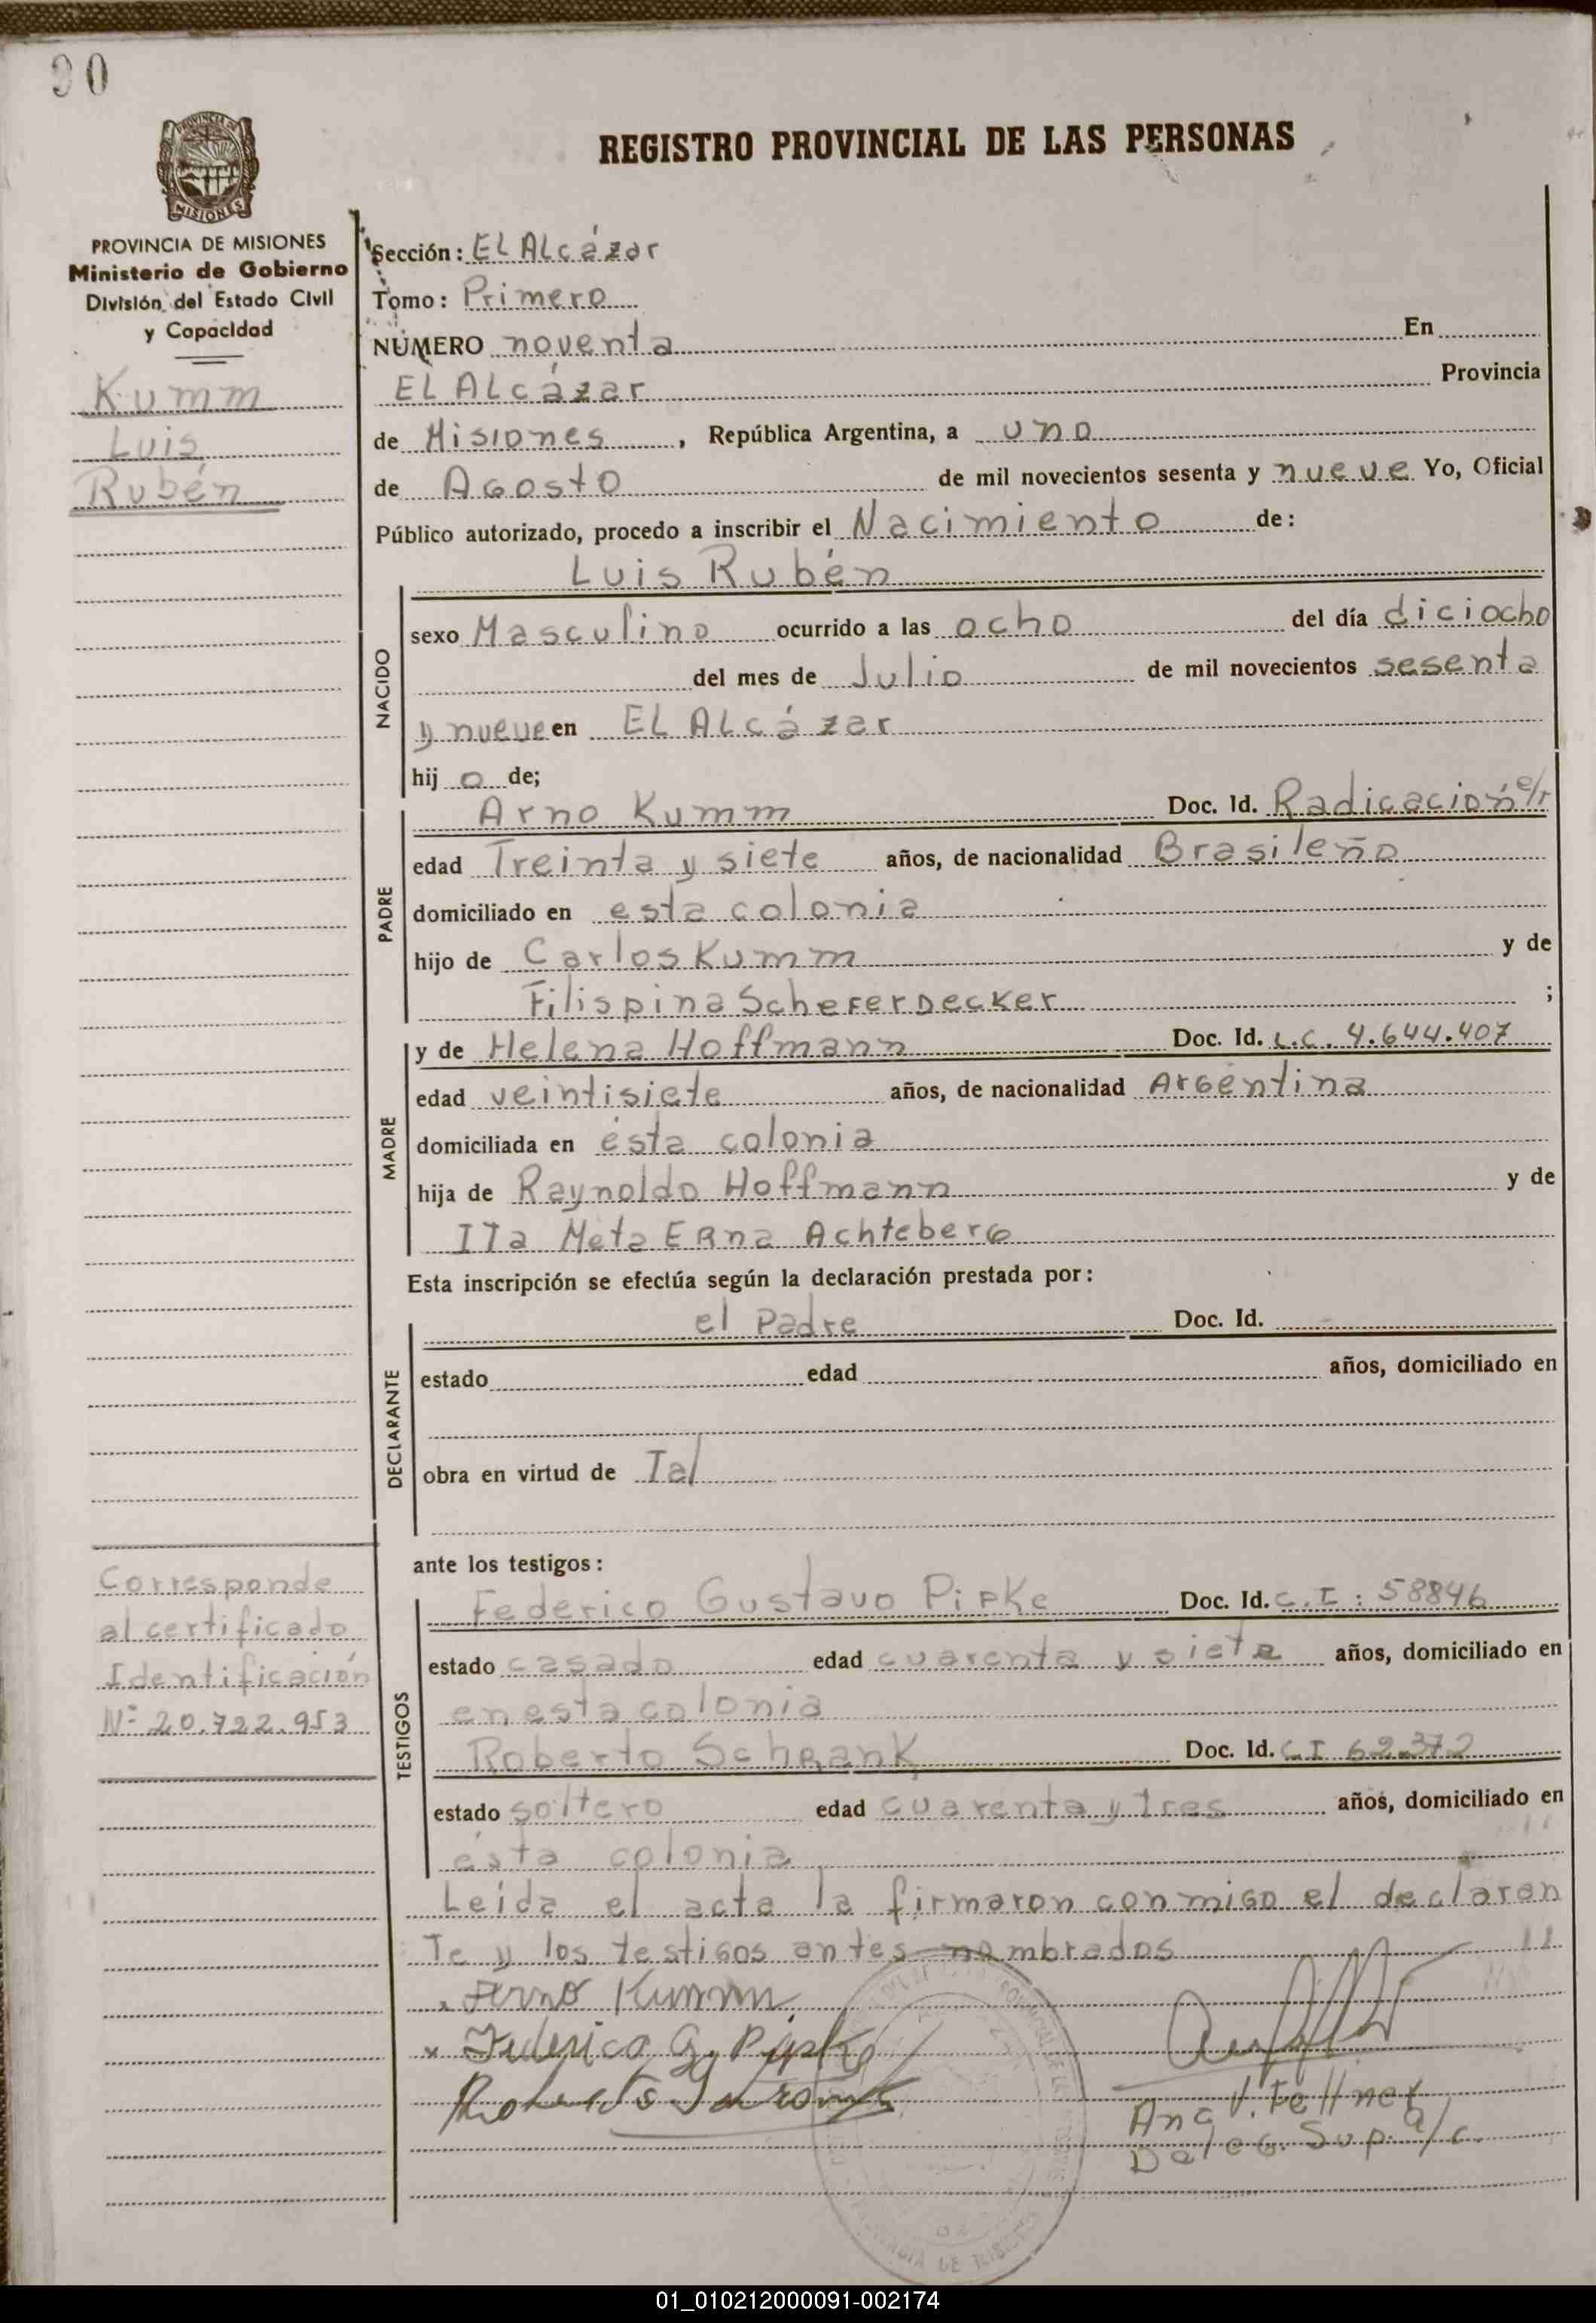 90
PROVINCIA DE MISIONES
Ministerio de Gobierno
División del Estado Civil
y Capacidad
Kumm
Luis
Rubén
Corresponde
al certificado
Identificación
Nº 20.722.953
REGISTRO PROVINCIAL DE LAS PERSONAS
Sección: EL ALcázar
Tomo: Primero
NÚMERO noventa En
EL ALcázar Provincia
de Misiones, República Argentina, a uno
de Agosto de mil novecientos sesenta y nueve Yo, Oficial
Público autorizado, procedo a inscribir el Nacimiento de:
Luis Rubén
NACIDO
sexo Masculino ocurrido a las ocho del día diciocho
del mes de Julio de mil novecientos sesenta
y nueve en EL ALcázar
hij o de;
PADRE
Arno Kumm Doc. Id. Radicación e/t
edad Treinta y siete años, de nacionalidad Brasileño
domiciliado en esta colonia
hijo de Carlos Kumm y de
Filispina Scheferdecker ;
MADRE
y de Helena Hoffmann Doc. Id. L.C. 4.644.407
edad veintisiete años, de nacionalidad Argentina
domiciliada en ésta colonia
hija de Raynoldo Hoffmann y de
ITa Meta Erna Achteberg
Esta inscripción se efectúa según la declaración prestada por:
DECLARANTE
el Padre Doc. Id.
estado edad años, domiciliado en
obra en virtud de Tal
ante los testigos:
TESTIGOS
Federico Gustavo Pipke Doc. Id. C.I: 58846
estado casado edad cuarenta y siete años, domiciliado en
en esta colonia
Roberto Schrank Doc. Id. C.I 62.372
estado soltero edad cuarenta y tres años, domiciliado en
ésta colonia
Leída el acta la firmaron conmigo el declaran
Te y los testigos antes nombrados
Arno Kumm
x Federico G. Pipke
Ana V. Fettner
Deleg. Sup. a/c.
01_010212000091-002174